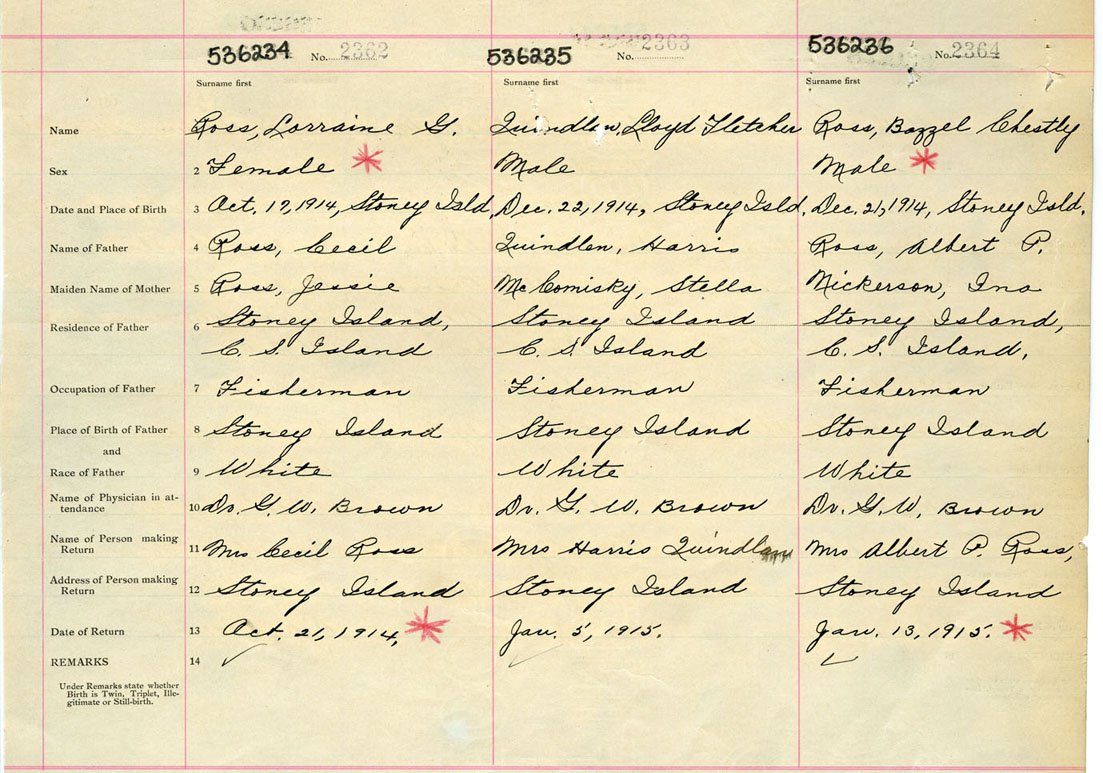 536234 No. 2362 536235 No. 2363 536236 No. 2364
Surname first Surname first Surname first
Name Ross, Lorraine G. Quindlen, Lloyd Fletcher Ross, Bazzel Chestly
Sex 2 Female * Male Male *
Date and Place of Birth 3 Oct. 17, 1914, Stoney Isld, Dec. 22, 1914, Stoney Isld. Dec. 21, 1914, Stoney Isld.
Name of Father 4 Ross, Cecil Quindlen, Harris Ross, Albert P.
Maiden Name of Mother 5 Ross, Jessie McComisky, Stella Nickerson, Ina
Residence of Father 6 Stoney Island, Stoney Island Stoney Island,
C. S. Island C. S. Island C. S. Island,
Occupation of Father 7 Fisherman Fisherman Fisherman
Place of Birth of Father 8 Stoney Island Stoney Island Stoney Island
and
Race of Father 9 White White White
Name of Physician in at-
tendance 10 Dr. G. W. Brown Dr. G. W. Brown Dr. G. W. Brown
Name of Person making
Return 11 Mrs Cecil Ross Mrs Harris Quindlen Mrs Albert P. Ross,
Address of Person making
Return 12 Stoney Island Stoney Island Stoney Island
Date of Return 13 Oct. 21, 1914, * Jan. 5, 1915. Jan. 13, 1915. *
REMARKS 14 ✓ ✓ ✓
Under Remarks state whether
Birth is Twin, Triplet, Ille-
gitimate or Still-birth.